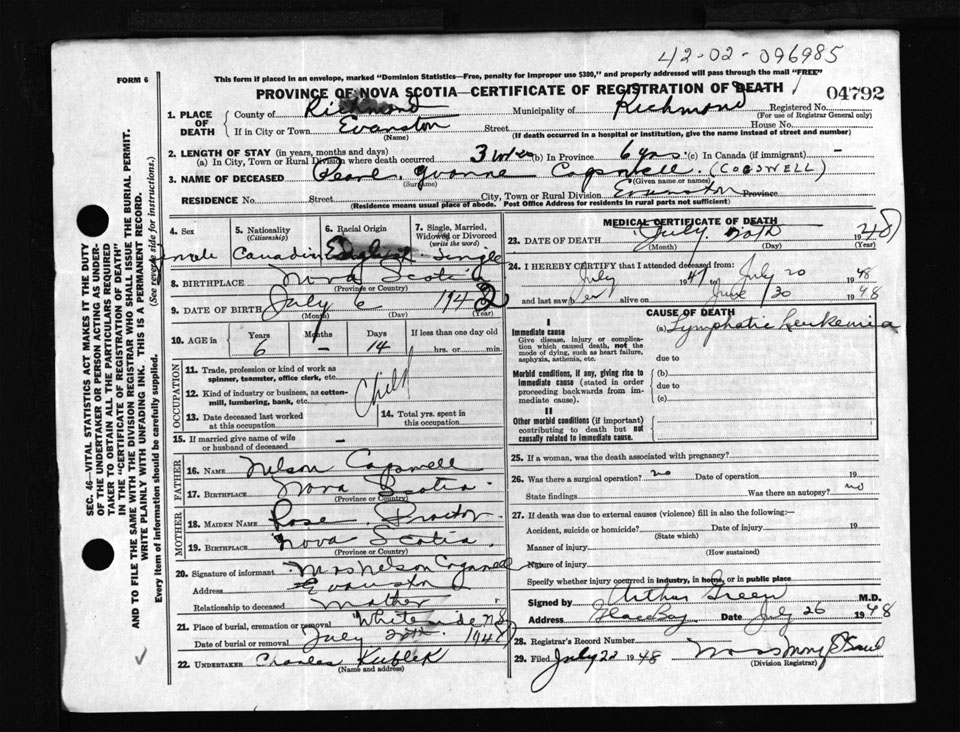 42-02-096985
FORM 6
This form if placed in an envelope, marked "Dominion Statistics—Free, penalty for improper use $300," and properly addressed will pass through the mail "FREE"
PROVINCE OF NOVA SCOTIA—CERTIFICATE OF REGISTRATION OF DEATH
04792
1. PLACE OF DEATH
County of Richmond Municipality of Richmond Registered No.
(For use of Registrar General only)
If in City or Town Evanston Street House No.
(Name) (If death occurred in a hospital or institution, give the name instead of street and number)
2. LENGTH OF STAY (in years, months and days)
(a) In City, Town or Rural Division where death occurred 3 (b) In Province 6 yrs (c) In Canada (if immigrant) -
3. NAME OF DECEASED Pearl Yvonne Cogswell (COGSWELL)
(Surname) (Given name or names)
RESIDENCE No. Street City, Town or Rural Division Evanston Province
(Residence means usual place of abode. Post Office Address for residents in rural parts not sufficient)
4. Sex 5. Nationality (Citizenship) 6. Racial Origin 7. Single, Married, Widowed or Divorced (write the word)
Canadian English Single
8. BIRTHPLACE Nova Scotia
(Province or Country)
9. DATE OF BIRTH July 6 1942
(Month) (Day) (Year)
10. AGE in Years 6 Months - Days 14 If less than one day old
hrs. or min.
OCCUPATION
11. Trade, profession or kind of work as spinner, teamster, office clerk, etc.
12. Kind of industry or business, as cotton-mill, lumbering, bank, etc. Child
13. Date deceased last worked at this occupation 14. Total yrs. spent in this occupation
15. If married give name of wife or husband of deceased -
FATHER
16. NAME Nelson Cogswell
17. BIRTHPLACE Nova Scotia
(Province or Country)
MOTHER
18. MAIDEN NAME Rose Proctor
19. BIRTHPLACE Nova Scotia
(Province or Country)
20. Signature of informant Mrs Nelson Cogswell
Address Evanston
Relationship to deceased Mother
21. Place of burial, cremation or removal Whiteside N.S.
Date of burial or removal July 1948
22. UNDERTAKER Charles
(Name and address)
MEDICAL CERTIFICATE OF DEATH
23. DATE OF DEATH July 20th 1948
(Month) (Day) (Year)
24. I HEREBY CERTIFY that I attended deceased from:
July 1947 July 20 1948
and last saw her alive on June 30 1948
CAUSE OF DEATH
I
Immediate cause (a) Lymphatic Leukemia
Give disease, injury or complication which caused death, not the mode of dying, such as heart failure, asphyxia, asthenia, etc.
due to
Morbid conditions, if any, giving rise to immediate cause (stated in order proceeding backwards from immediate cause).
(b)
due to
(c)
II
Other morbid conditions (if important) contributing to death but not causally related to immediate cause.
25. If a woman, was the death associated with pregnancy?
26. Was there a surgical operation? no Date of operation 19
State findings Was there an autopsy? no
27. If death was due to external causes (violence) fill in also the following:—
Accident, suicide or homicide? Date of injury 19
(State which)
Manner of injury
(How sustained)
Nature of injury
Specify whether injury occurred in industry, in home, or in public place
Signed by Arthur Green M.D.
Address Glace Bay Date July 26 1948
28. Registrar's Record Number
29. Filed July 22 1948
(Division Registrar)
SEC. 46—VITAL STATISTICS ACT MAKES IT THE DUTY
OF THE UNDERTAKER OR PERSON ACTING AS UNDERTAKER
TO OBTAIN ALL THE PARTICULARS REQUIRED
IN THE "CERTIFICATE OF REGISTRATION OF DEATH"
AND TO FILE THE SAME WITH THE DIVISION REGISTRAR WHO SHALL ISSUE THE BURIAL PERMIT.
WRITE PLAINLY WITH UNFADING INK. THIS IS A PERMANENT RECORD.
Every item of information should be carefully supplied. (See reverse side for instructions.)